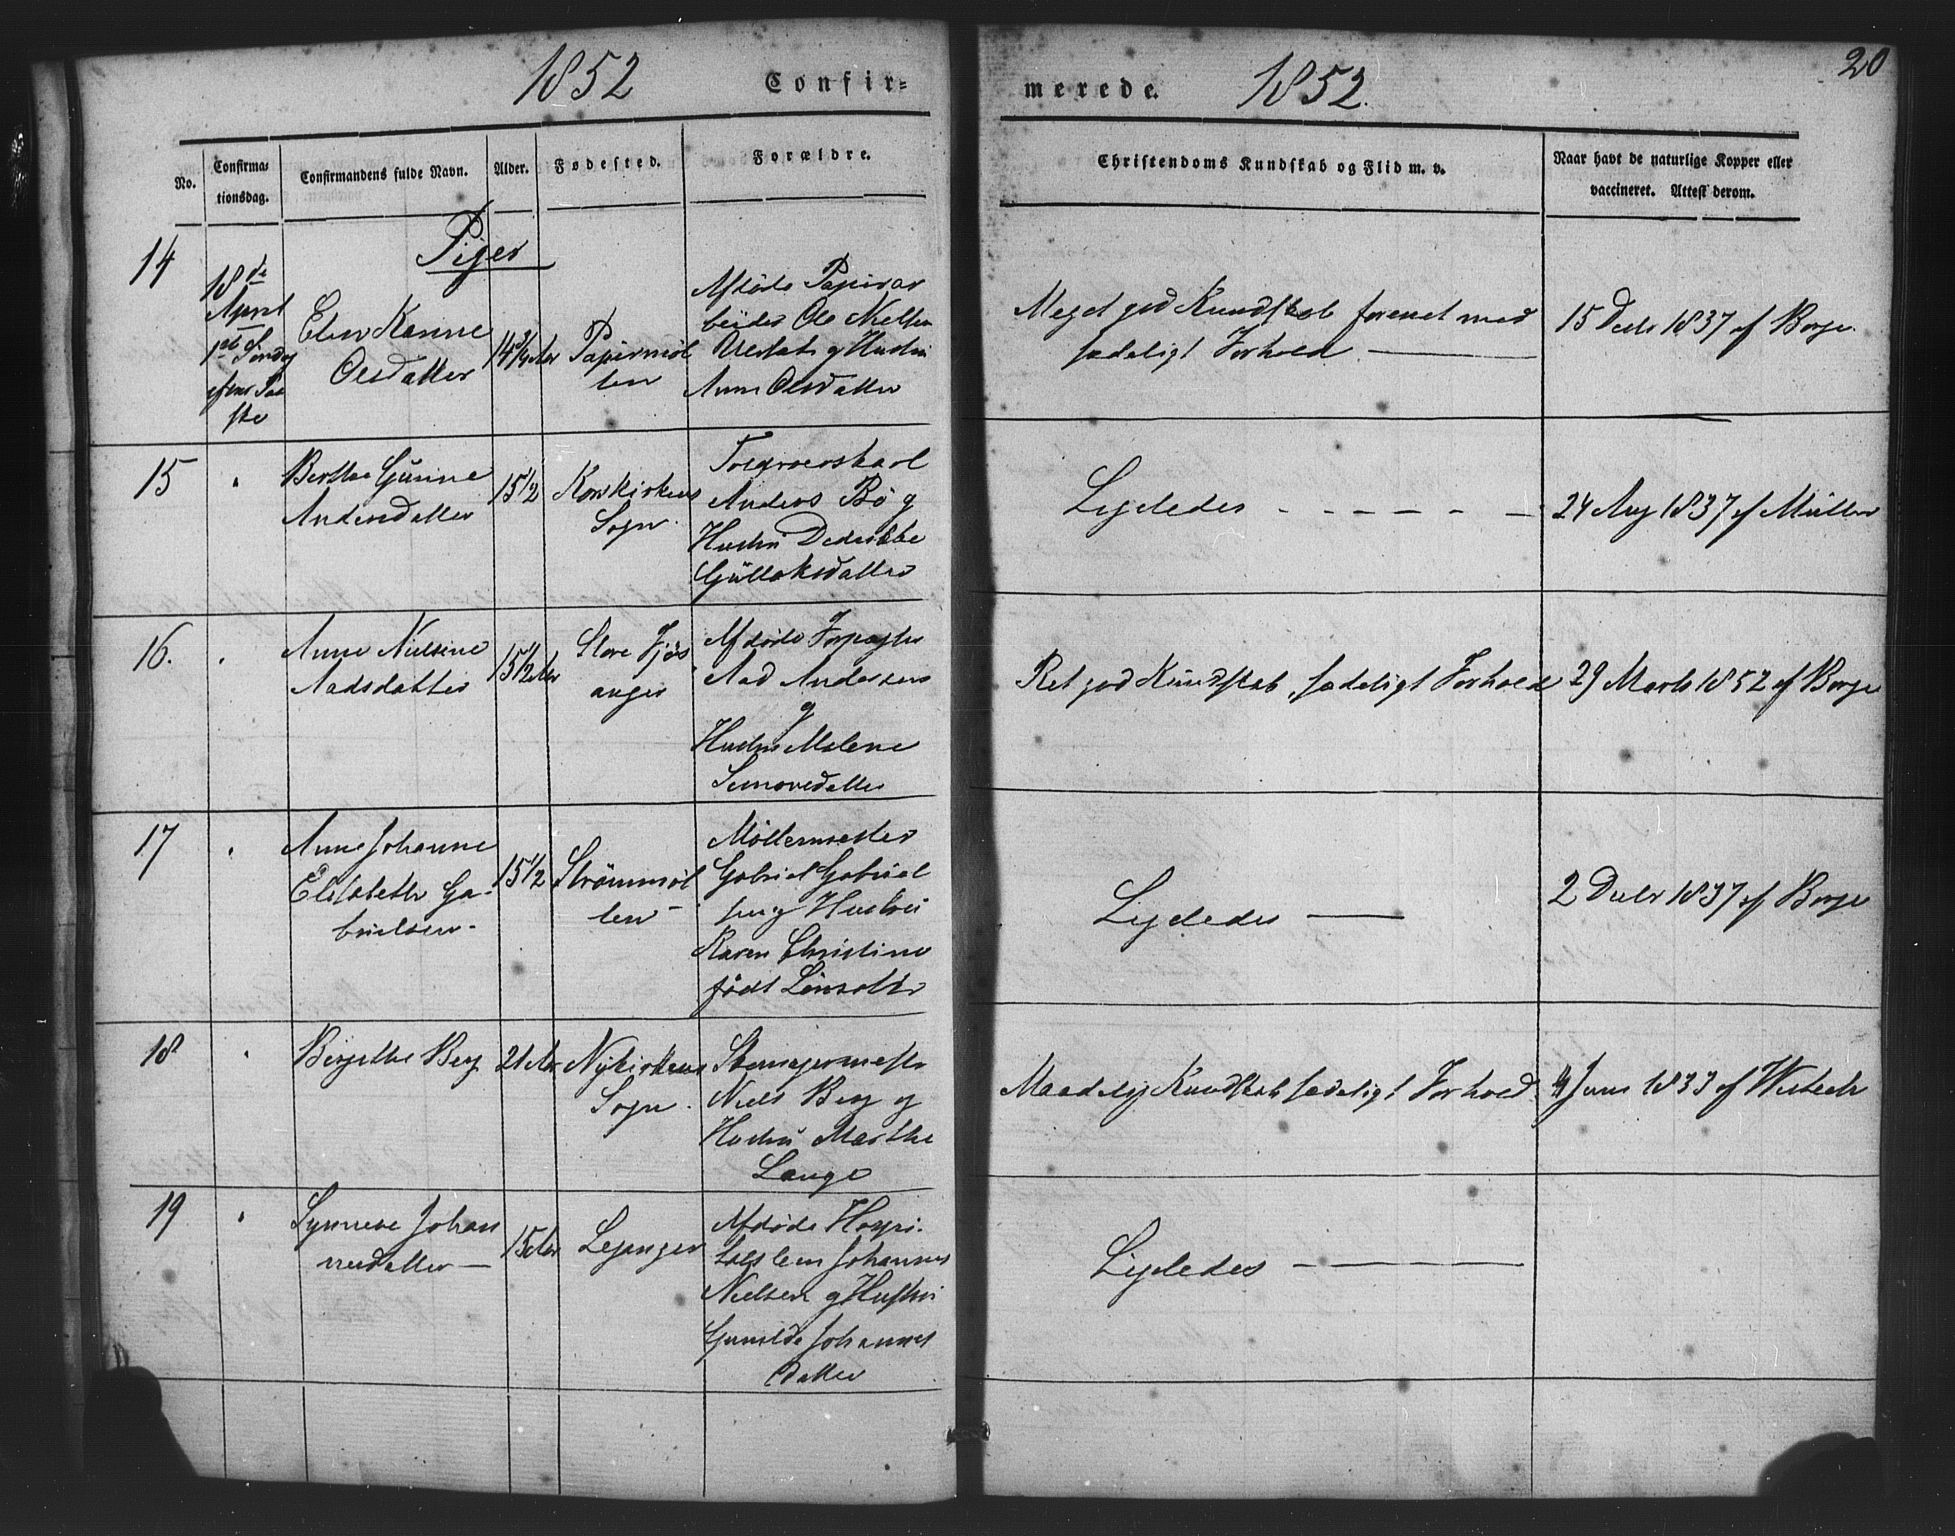 1852 Confir-
merede. 1852.
20
No.
Confirma-
tionsdag.
Confirmandens fulde Navn.
Alder.
Fødested.
Forældre.
Christendoms Kundskab og Flid m. v.
Naar havt de naturlige Kopper eller
vaccineret. Attest derom.
Piger
14
18de
April
1ste S.
Søndag
efter Paa
ske
Elen Karine
Olsdatter
14 3/4 Aar
Papirmøl
len
Afdøde Papirar
beider Ole Nielsen
og Hustru
Anne Olsdatter
Meget god Kundskab forenet med
sædeligt Forhold
15 Decbr 1837 af Borge
15
"
Berthe Gurine
Andersdatter
15 1/2
Korskirkens
Sogn.
Anders Bö og
Hustru
Gulleksdatter
Ligeledes
24 Aug 1837 af Müller
16.
"
Anne Nielsine
Aadsdatter
15 1/2 Aar
Store Fjøs
anger
Afdøde Forpagter
Aad Andersen
og
Hustru Malene
Simonsdatter
Ret god Kundskab, sædeligt Forhold
29 Marts 1852 af Borge
17
"
Anne Johanne
Elisabeth Ga-
brielsen-
15 1/2
Strömmøl
len
Møllermester
Gabriel Gabriel
sen og Hustru
Karen Christine
født
Ligeledes
2 Decbr 1837 af Borge
18
"
Birgithe Berg
21 Aar
Nykirkens
Sogn.
Niels Berg og
Hustru Marthe
Lange
Maadelig Kundskab sædeligt Forhold
4 Juni 1833 af Wisbech
19
"
Synneve Johan
nesdatter
15 Aar
Leganger
Afdøde Hospi-
talslem Johannes
Nielsen og Hustru
Gunilde Johannes
datter
Ligeledes